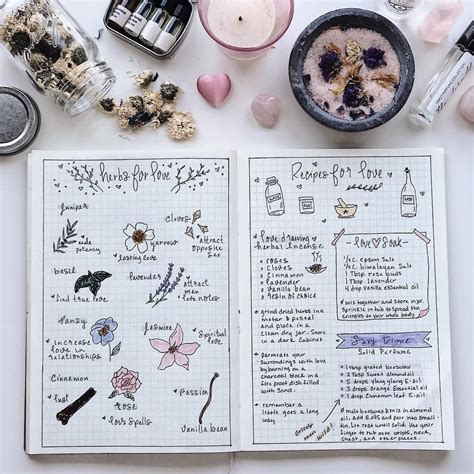 herbs for love
juniper
male potency
yarrow
lasting love
cloves
attract opposite sex
basil
find true love
lavender
attract men
love notes
Pansy
increase love in relationships
Jasmine
Spiritual love
Cinnamon
lust
rose
love spells
Passion
vanilla bean
Recipes for love
love drawing
herbal incense:
roses
cloves
Cinnamon
lavender
Vanilla bean
resin of choice
grind dried herbs in
mortar & pestal
and place in
clean dry jar. Store
in a dark Cabinet
Permeate your
surroundings with love
by burning on a
charcoal block in a
fire proof dish filled
with Sand.
remember a
little goes a long
way
love Soak
1/2 c. epsom Salt
1/2 c. himalayan Salt
1 Tbsp rose buds
4 drop Vanilla essential oil
mix together and Store in jar.
Sprinkle in tub to spread the
energies to your whole body.
Sexy Time
Solid Perfume
1 Tbsp grated beeswax
2 Tbsp Sweet almond oil
5 drops Ylang ylang E.oil
3 drops Orange Essential oil
1 drop Cinnamon leaf E.oil
melt beeswax & mix in almond
oil, add E.oils and pour into small
tin. Let rest until Solid. Use your
finger to rub onto wrists, neck,
chest, and other places.